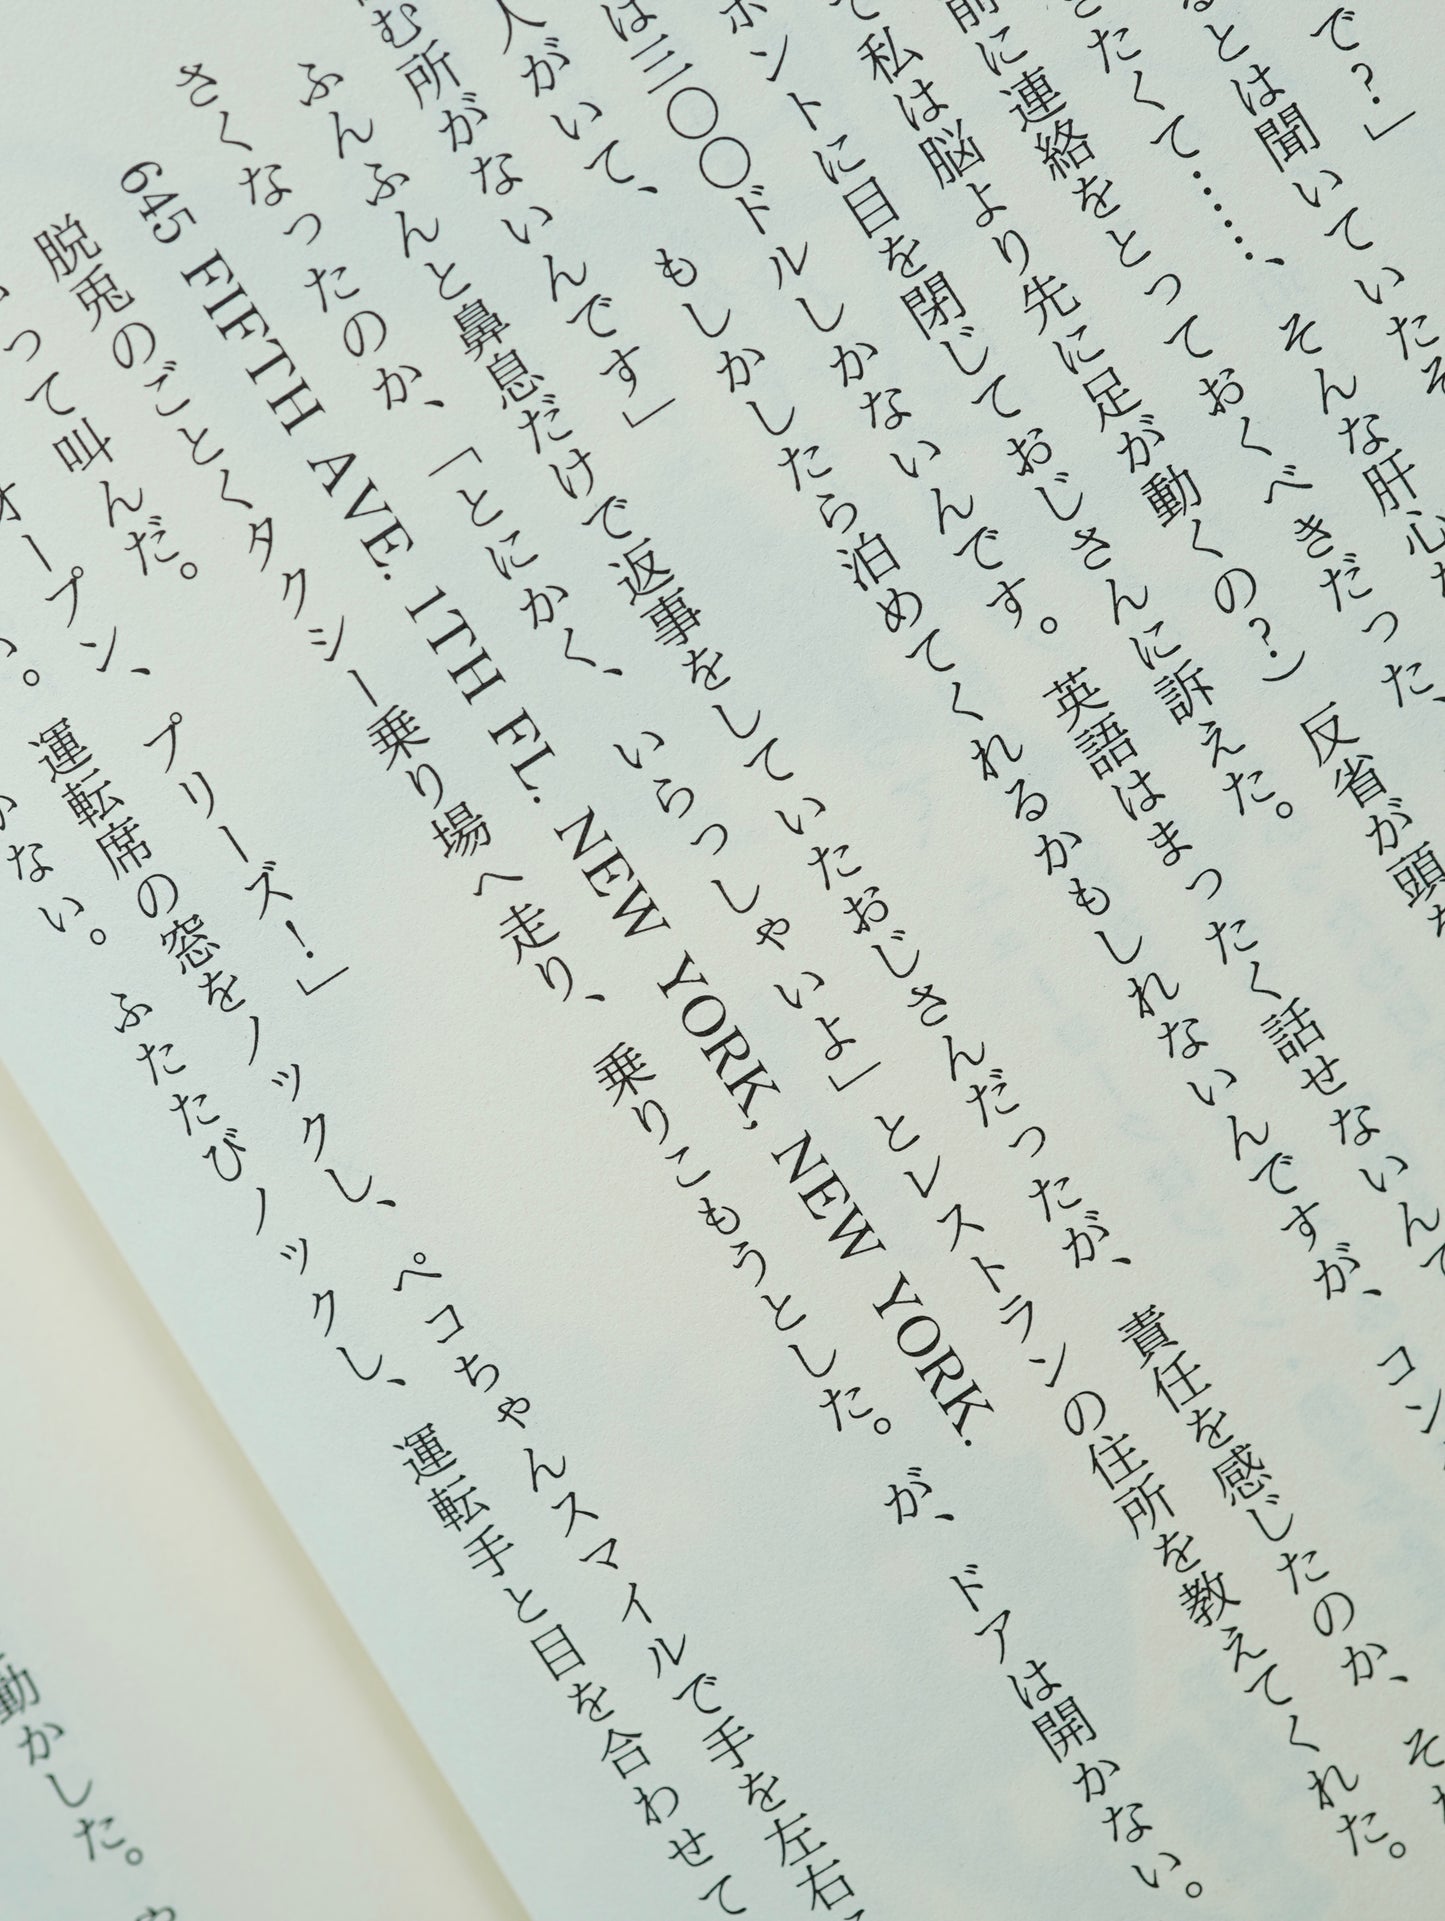 で?」
るとは聞いていたそ
きたくて……、そんな肝心
前に連絡をとっておくべきだった、
て私は脳より先に足が動くの?) 反省が頭
ホントに目を閉じておじさんに訴えた。
は三〇〇ドルしかないんです。英語はまったく話せないんで
人がいて、もしかしたら泊めてくれるかもしれないんですが、コン
む所がないんです」
ふんふんと鼻息だけで返事をしていたおじさんだったが、責任を感じたのか、それ
さくなったのか、「とにかく、いらっしゃいよ」とレストランの住所を教えてくれた。
645 FIFTH AVE. 1TH FL. NEW YORK, NEW YORK.
脱兎のごとくタクシー乗り場へ走り、乗りこもうとした。が、ドアは開かない。
って叫んだ。
オープン、プリーズ!」
い。運転席の窓をノックし、ペコちゃんスマイルで手を左右
かない。ふたたびノックし、運転手と目を合わせて
動かした。